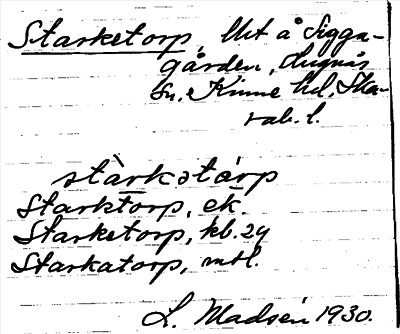 Starketorp, Ut å Sigga-
gården, Hugnås
Sn. Kinne hd, Ska-
rab. l.
stàrkətárp
Starktorp, ek.
Starketorp, kb. 29
Starkatorp, mtl.
L. Madsén 1930.